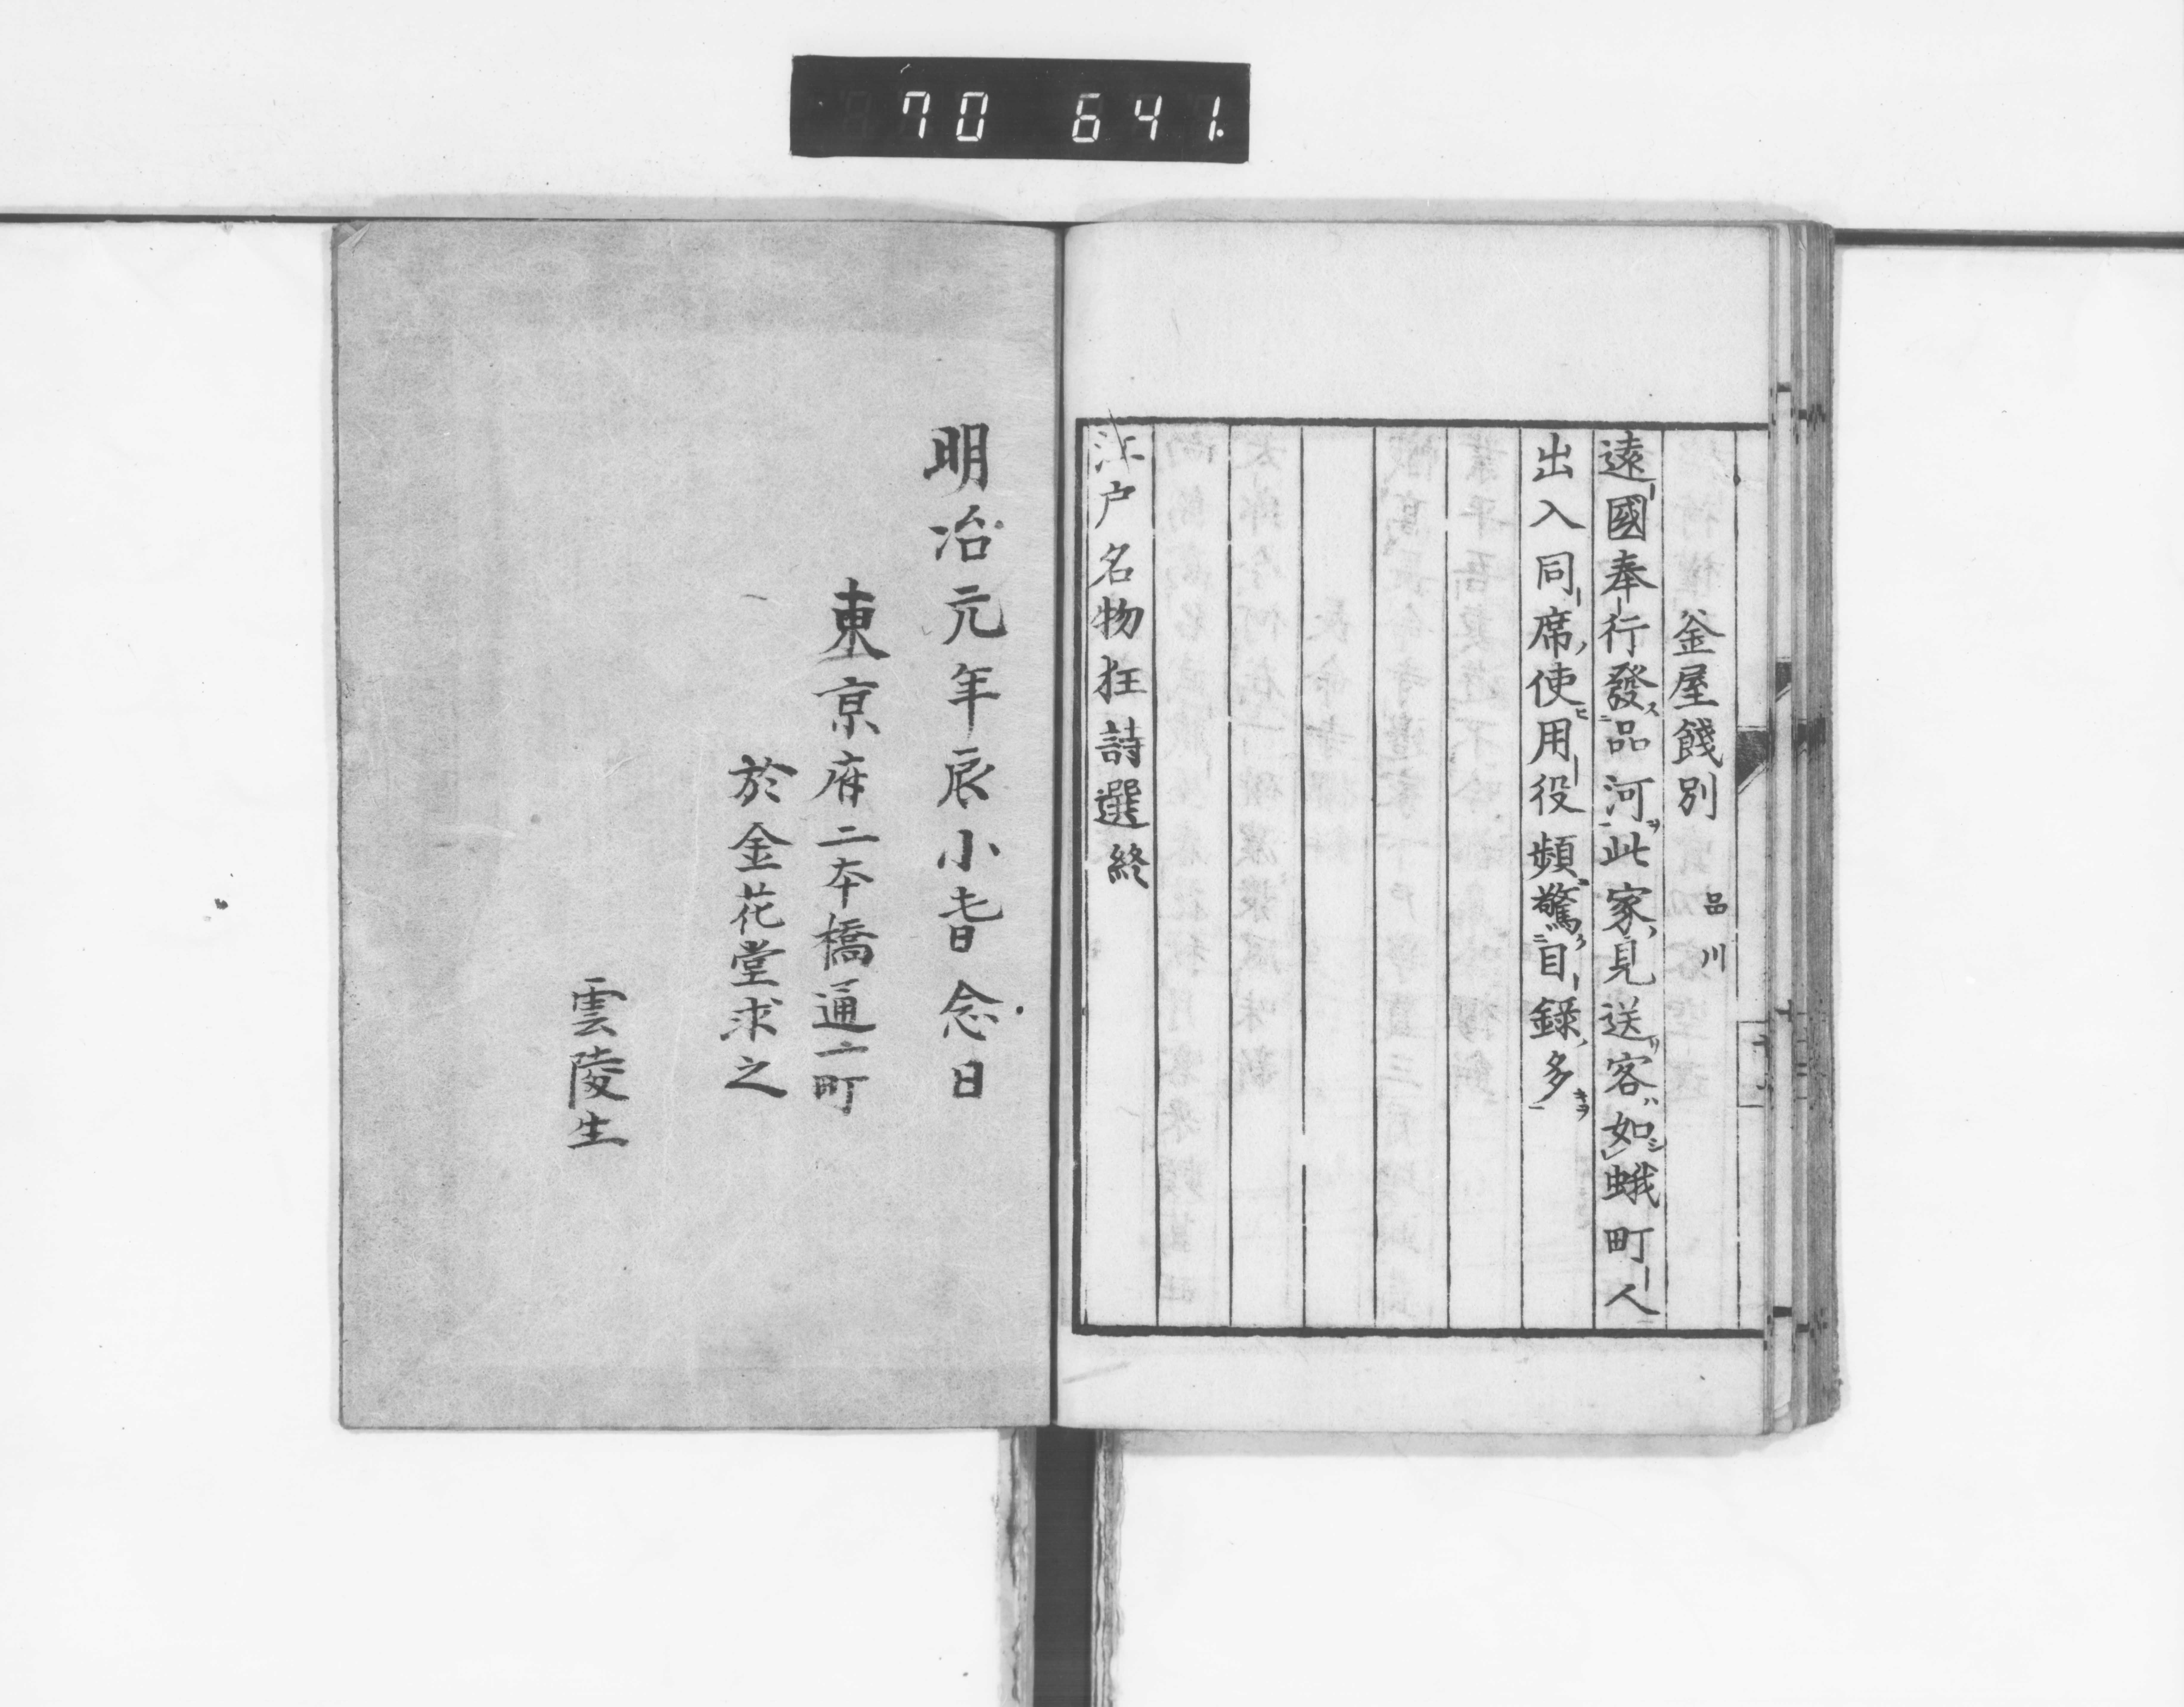 70 641.
釜屋餞別 品川
遠國奉行發品河此家見送客如蛾町人
出入同席使用役頻驚目録多
江戸名物狂詩選終
明治元年辰小春念日
東京府二本橋通一町
於金花堂求之
雲陵生